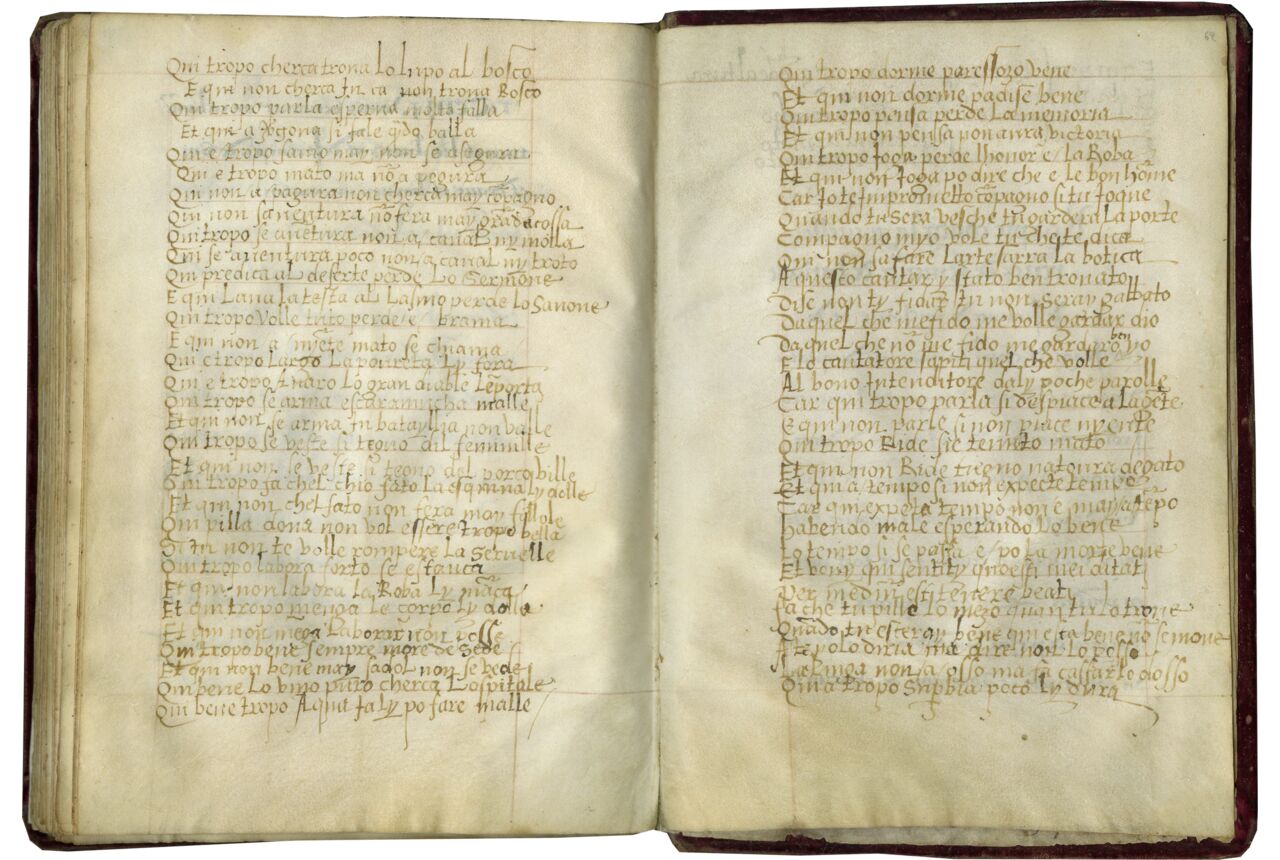 Qui tropo cherca trova Lo lupo al bosco
E qui non cherca In ca non trova Bosco
Qui tropo parla esperva molto falla
Et que a v̄gona si fale q̄do balla
Qui e tropo savio may non se asegura
Qui e tropo mato ma nō a pogura
Qui non a pagura non cherca may cōpagno
Qui non s'aventura nō fera may grāda cossa
Qui tropo se avētura non a caval ny molla
Qui se aventura poco non a caval ny troto
Qui predica al deserte perde Lo Sermōne
E qui Lava la testa al Lasino perde lo Savone
Qui tropo volle tuto perde e brama
E qui non a nyēte mato se chiama
Qui e tropo Largo La poureta Ly fora
Qui e tropo Avaro Lo gran diable Lēporta
Qui tropo se arma escaramucha malle
Et qui non se arma In batayllia non valle
Qui tropo se veste si tegno dil femmille
Et qui non se veste si tegno del porco ville
Qui tropo fa chel chio fato La esquina Ly dolle
Et qui non chel fato non fera may fillole
Qui pilla dona non vol essere tropo bella
Si tu non te volle rompere La Servelle
Qui tropo labora forto se estanca
Et qui non labora La Roba Ly māca
Et qui tropo menga Le corpo Ly dolle
Et qui non mēga Laborar non volle
Qui tropo bene sempre more de Sede
Et qui non bene may sadol non se vede
Qui bene Lo vino puro cherca Lospitale
Qui bene tropo Aqua faly po fare malle
62
Qui tropo dorme paressozo vene
Et qui non dorme padise bene
Qui tropo pensa perde La memoria
Et qui non pensa non aura victoria
Qui tropo Joga perde lhonor e La Roba
Et qui non Joga po dire che e le bon hōme
Car Jo te Imprometto cōpagno si tu Joque
Quando tu Sera vesche tu gardera La porte
Compagno myo vole tu che te dica
Qui non sa fare Larte sarra La botica
Aquesto cantar y stato ben trovato
Dise non ty fidar tu non Seray gabbato
Da quel che me fido me volle gardar dio
Da quel che nō me fido me gardaro ben yo
E lo cantatore sapiti quel che volle
Al bono Intenditore daly poche parolle
Car qui tropo parla si despiace a La gēte
E qui non parle si non piace nyente
Qui tropo Ride sie tenuto mato
Et qui non Ride tiegno natoura de gato
Et qui a tempo si non expecte tempo
Car qui expeta tempo non e may a tēpo
habendo male esperando Lo bene
Lo tempo si se passa e po La morte vene
Et vony qui sentity questi mei ditati
Per mediū estitēcere beati
fa che tu pille Lo mezo quan tu lo trove
Quādo tu esteray bene qui esta bene nō se mone
A te volo diria ma dire non Lo posso
La Linga non a osso ma fa cassar lo dosso
Qui a tropo Supbia poco Ly dura